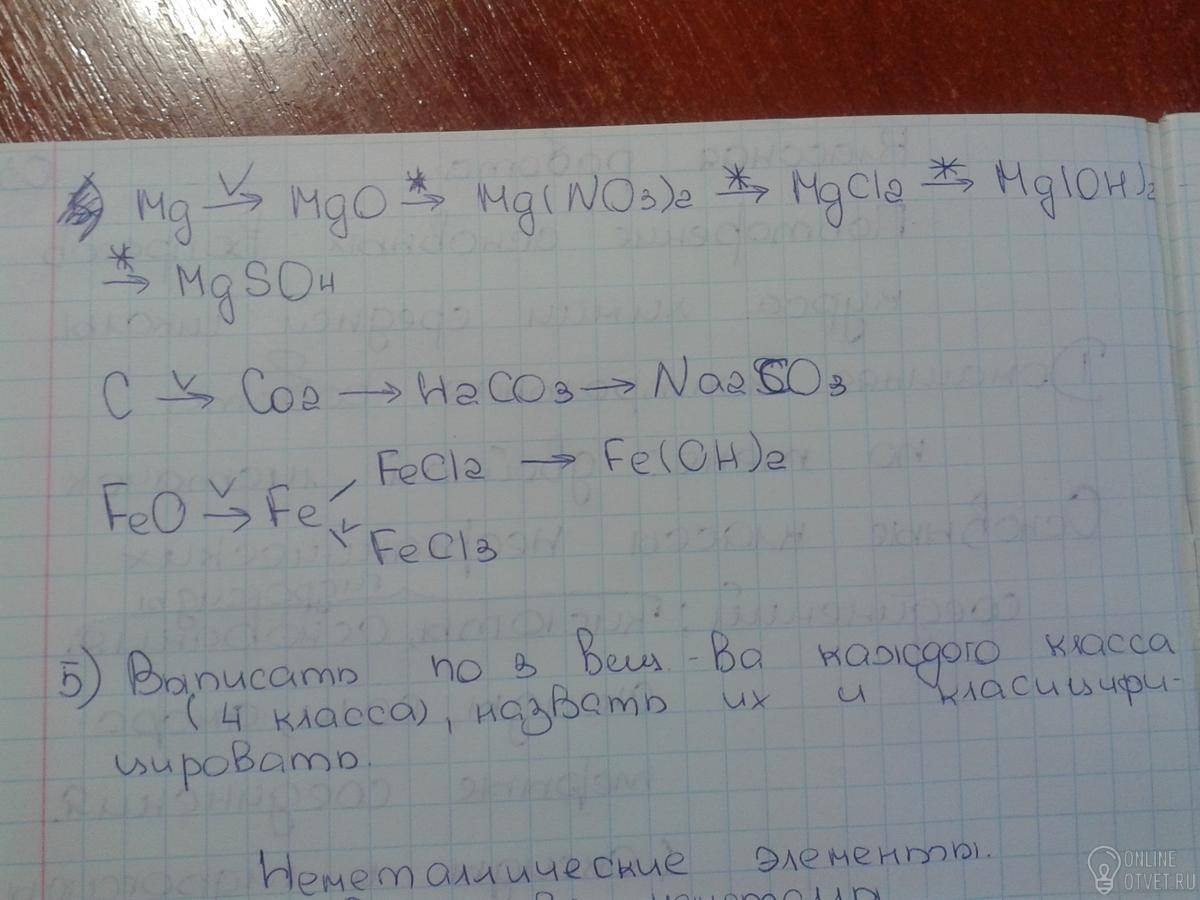 Mg → MgO → Mg(NO3)2 → MgCl2 → Mg(OH)2
→ MgSO4
C → CO2 → H2CO3 → Na2CO3
FeCl2 → Fe(OH)2
FeO → Fe
FeCl3
5) Выписать по 3 вещ-ва каждого класса
(4 класса), назвать их и класицифи-
цировать.
Неметаллические элементы.
ONLINE
OTVET.RU